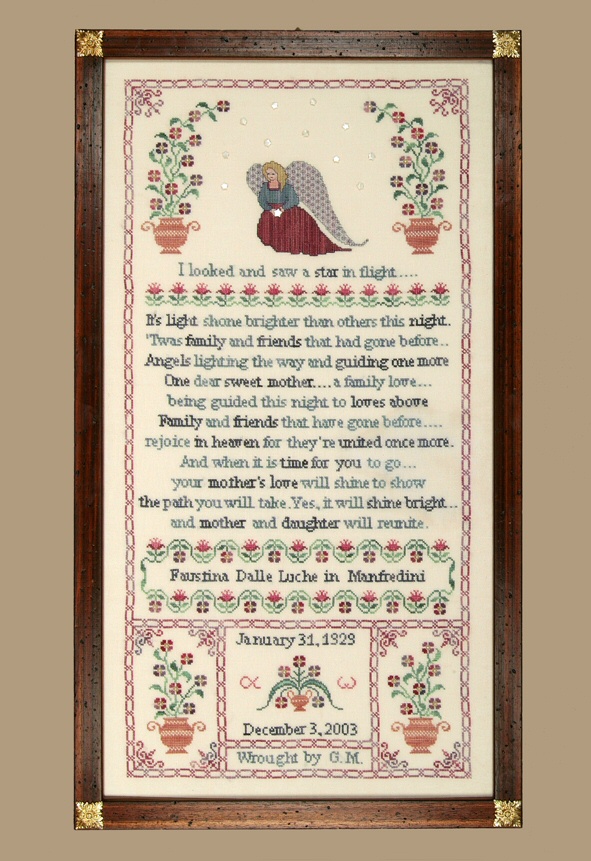 I looked and saw a star in flight....
It's light shone brighter than others this night.
'Twas family and friends that had gone before..
Angels lighting the way and guiding one more
One dear sweet mother.... a family love...
being guided this night to loves above
Family and friends that have gone before....
rejoice in heaven for they're united once more.
And when it is time for you to go...
your mother's love will shine to show
the path you will take. Yes, it will shine bright...
and mother and daughter will reunite.
Faustina Dalle Luche in Manfredini
January 31, 1929
α ω
December 3, 2003
Wrought by G.M.